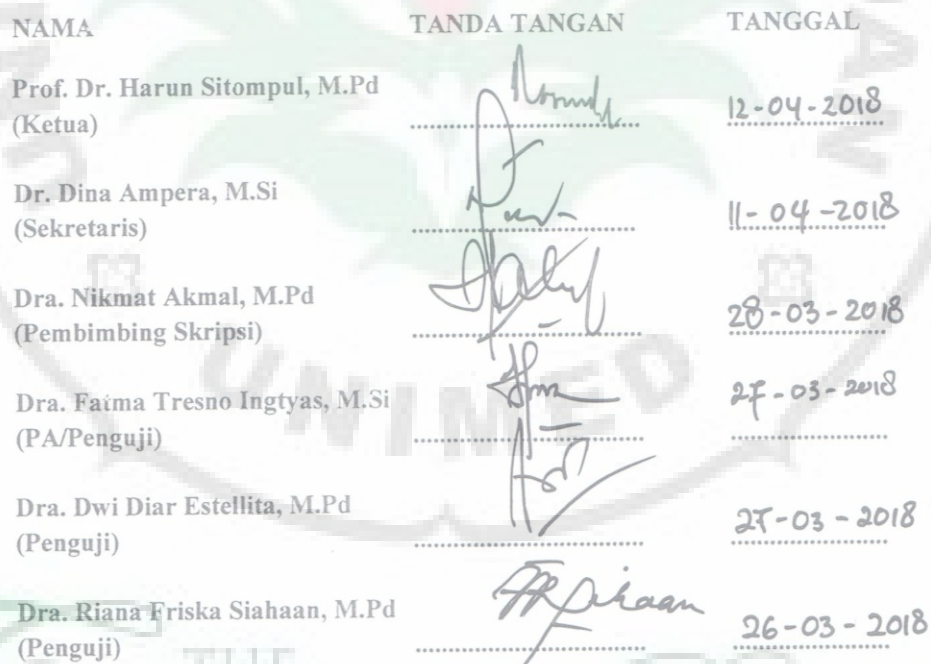 NAMA TANDA TANGAN TANGGAL
Prof. Dr. Harun Sitompul, M.Pd
(Ketua) 12-04-2018
Dr. Dina Ampera, M.Si
(Sekretaris) 11-04-2018
Dra. Nikmat Akmal, M.Pd
(Pembimbing Skripsi) 28-03-2018
Dra. Fatma Tresno Ingtyas, M.Si 27-03-2018
(PA/Penguji)
UNIMED
Dra. Dwi Diar Estellita, M.Pd
(Penguji) 27-03-2018
Dra. Riana Friska Siahaan, M.Pd
(Penguji) 26-03-2018
THE